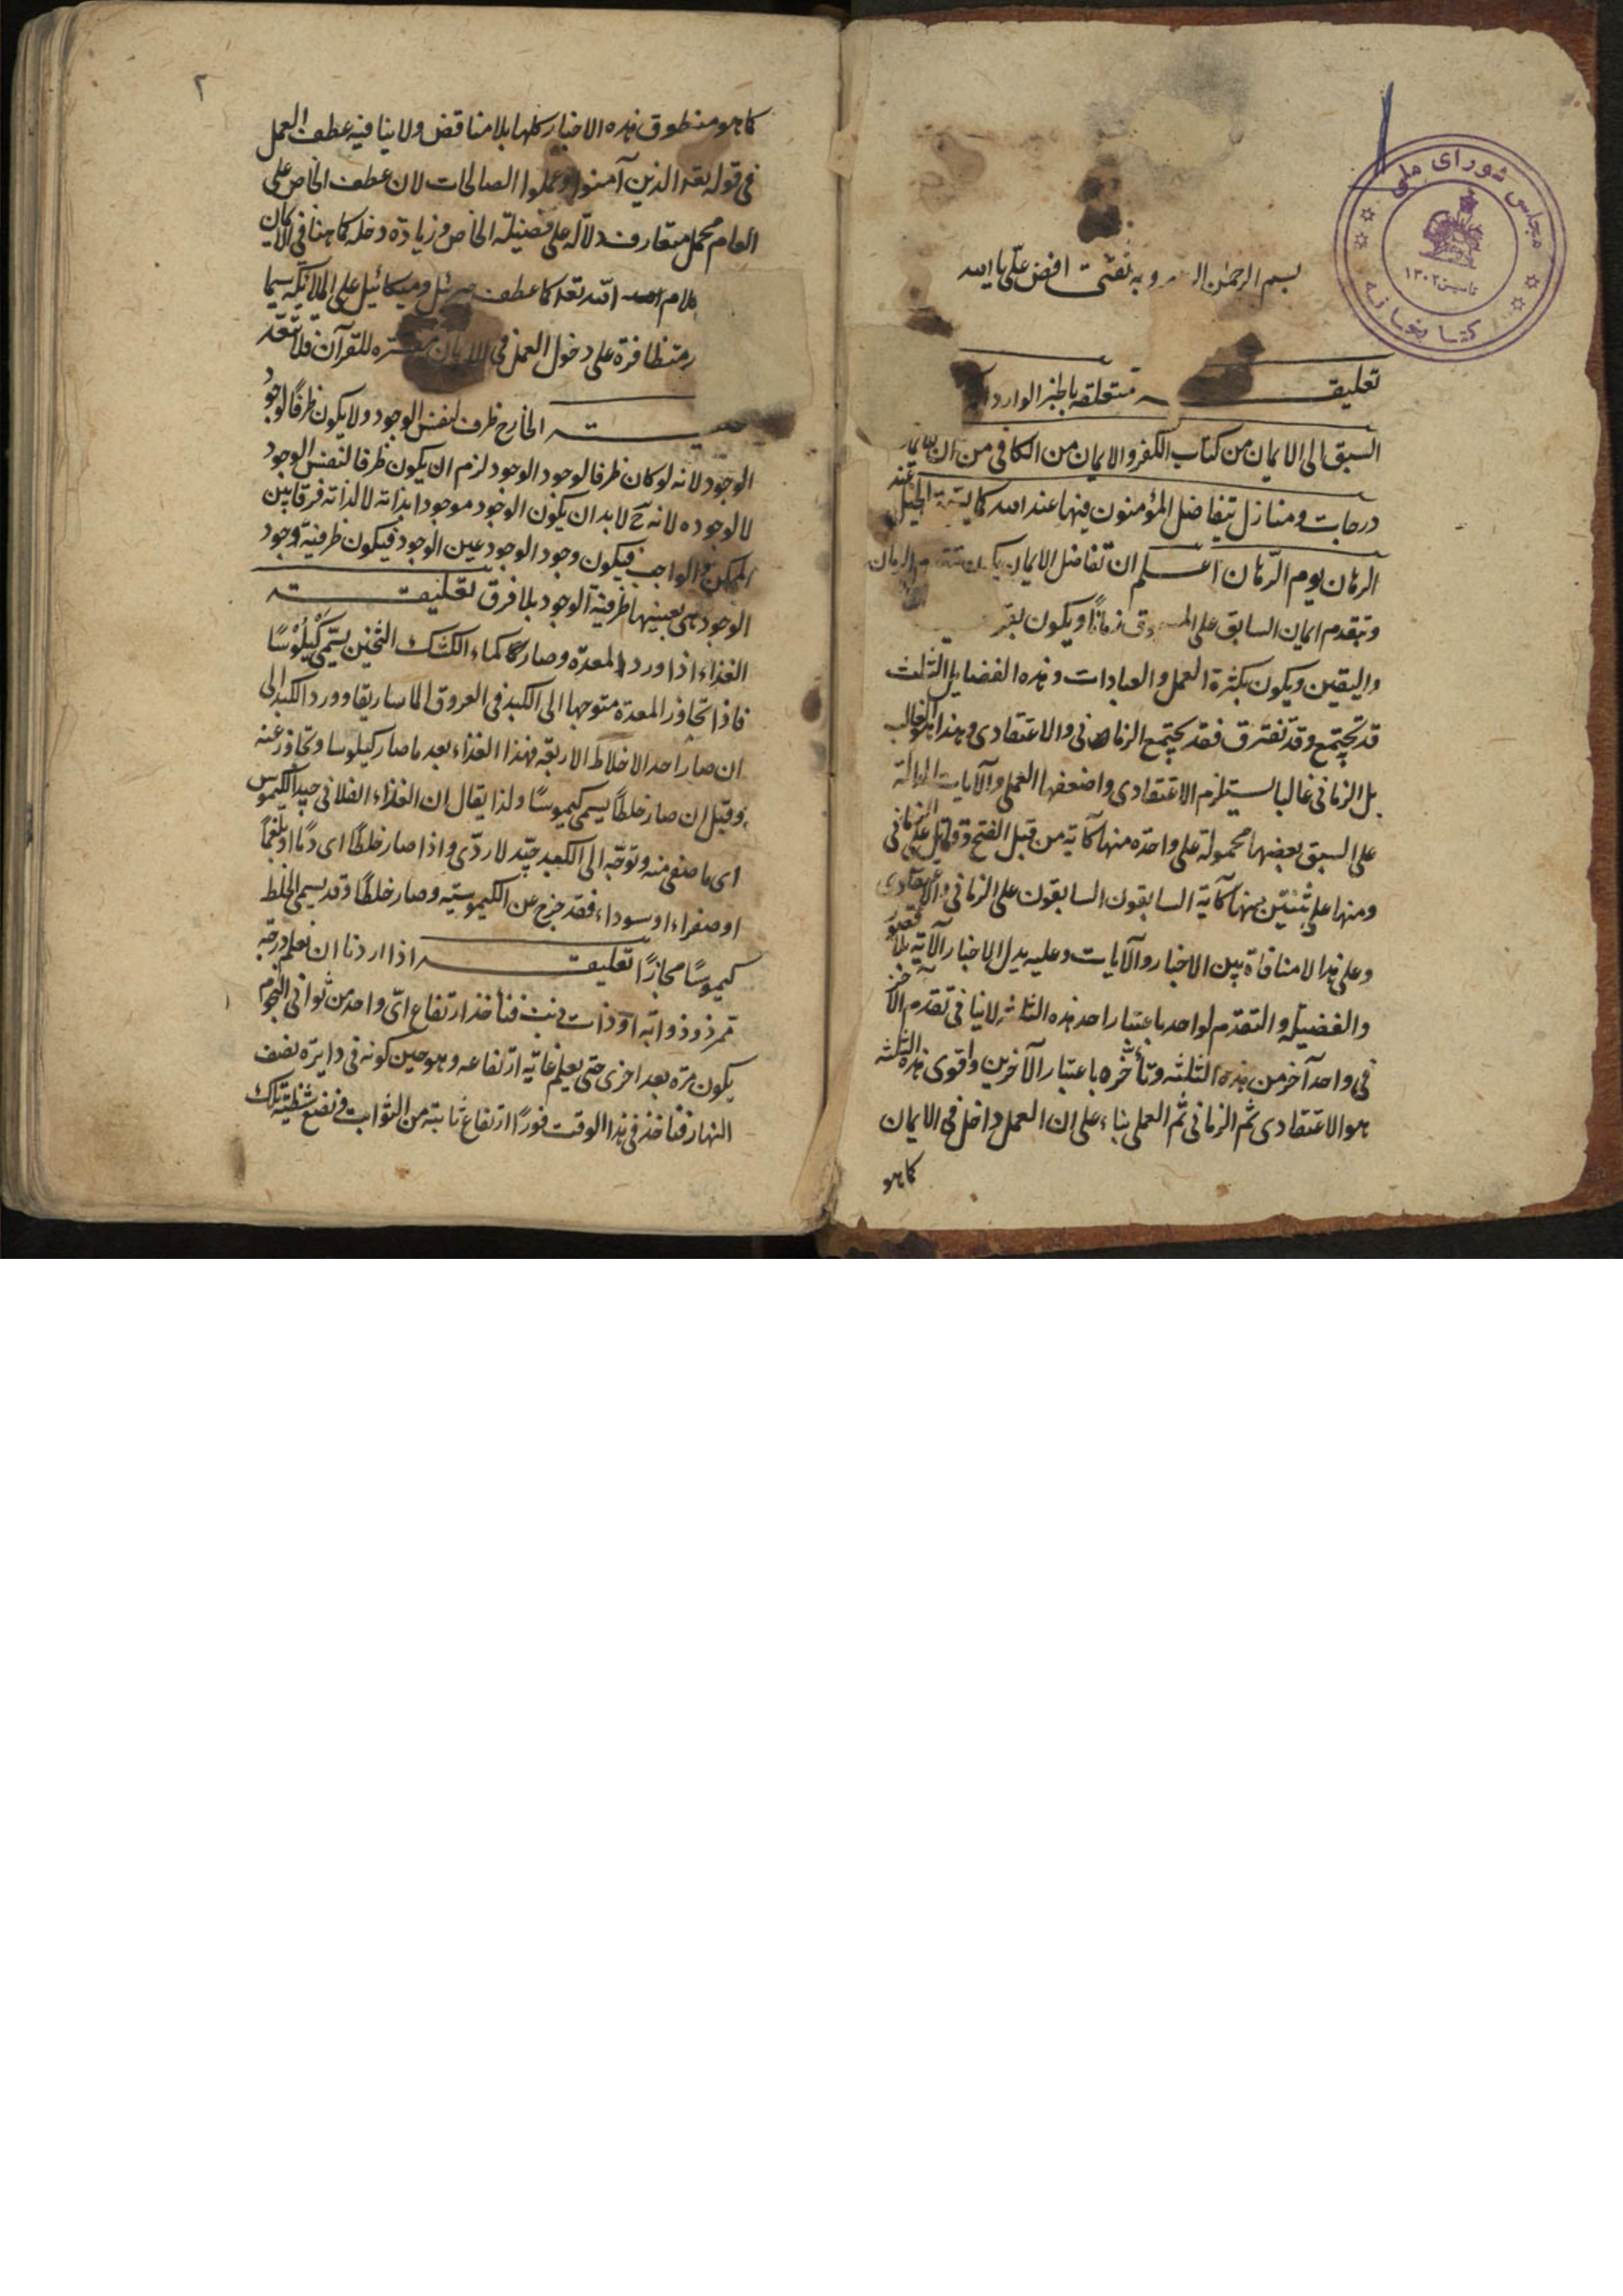 مجلس شورای ملی
تاسیس ۱۳۰۲
کتابخانه
بسم الرحمن وبه ثقتی افض علی یا الله
تعلیقـــــة متعلقه بالخبر الوارد
السبق الی الایمان من کتاب الکفر والایمان من الکافی من ان للایمان
درجات ومنازل یتفاضل المؤمنون فیها عند الله کما الخیل عند
الرهان یوم الرهان اعلم ان تفاضل الایمان یکون
وبتقدم ایمان السابق علی زمانًا ویکون
والیقین ویکون بکثرة العمل والعبادات وهذه الفضایل الثلث
قد تجتمع وقد تفترق فقد یجتمع الزمانی والاعتقادی وهذا هو الغالب
بل الزمانی غالبا یستلزم الاعتقادی واضعفها العملی والآیات الدالة
علی السبق بعضها محمولة علی واحدة منها کآیة من قبل الفتح وقاتل علی الزمانی
ومنها علی ثنتین منها کآیة السابقون السابقون علی الزمانی والاعتقادی
وعلی هذا لا منافاة بین الاخبار والآیات وعلیه یدل الاخبار الآتیة بلا قصور
والفضیلة والتقدم لواحد باعتبار احد هذه الثلاثة لا ینافی تقدم الآخر
فی واحد آخر من هذه الثلثه وتأخره باعتبار الآخرین واقوی هذه الثلثه
هو الاعتقادی ثم الزمانی ثم العملی بناء علی ان العمل داخل فی الایمان
کما هو
۲
کما هو منطوق هذه الاخبار کلها بلا مناقض ولا ینافیه عطف العمل
فی قوله تعه الذین آمنوا وعملوا الصالحات لان عطف الخاص علی
العام محمل متعارف دلالة علی فضیلة الخاص وزیادة دخله کما هنا فی الایمان
الله تعه کما عطف جبرئیل ومیکائیل علی الملائکة سیما
متظافرة علی دخول العمل فی الایمان مفسره للقرآن فلا تغفل
الخارج ظرف لنفس الوجود ولا یکون ظرفًا لوجود
الوجود لانه لو کان ظرفا لوجود الوجود لزم ان یکون ظرفا لنفس الوجود
لا لوجوده لانه ح لا بد ان یکون الوجود موجودا بذاته لا لذاته فرقا بین
الممکن والواجب فیکون وجود الوجود عین الوجود فیکون ظرفیة وجود
الوجود هی بعینها ظرفیة الوجود بلا فرق تعلیقـــــة
الغذاء اذا ورد المعدة وصار کماء الکشک الثخین یسمی کیلوسًا
فاذا تجاوز المعدة متوجها الی الکبد فی العروق الماساریقا وورد الکبد الی
ان صار احد الاخلاط الاربعة فهذا الغذاء بعد ما صار کیلوسا وتجاوز عنه
وقبل ان صار خلطًا یسمی کیموسًا ولذا یقال ان الغذاء الفلانی جید الکیموس
ای ما صفی منه وتوجه الی الکبد جید لا ردی واذا صار خلطًا ای دمًا او بلغمًا
او صفراء او سوداء فقد خرج عن الکیموسیة وصار خلطًا وقد یسمی الخلط
کیموسًا مجازًا تعلیقـــــة اذا اردنا ان نعلم درجة
ممر ذو ذوابة او ذات ذنب فنأخذ ارتفاع ای واحد من ثوانی النجوم
یکون مرة بعد اخری حتی یعلم غایة ارتفاعه وهو حین کونه فی دایرة نصف
النهار فنأخذ فی هذا الوقت فورًا ارتفاع ثابتة من الثوابت فنضع شظیة تلک